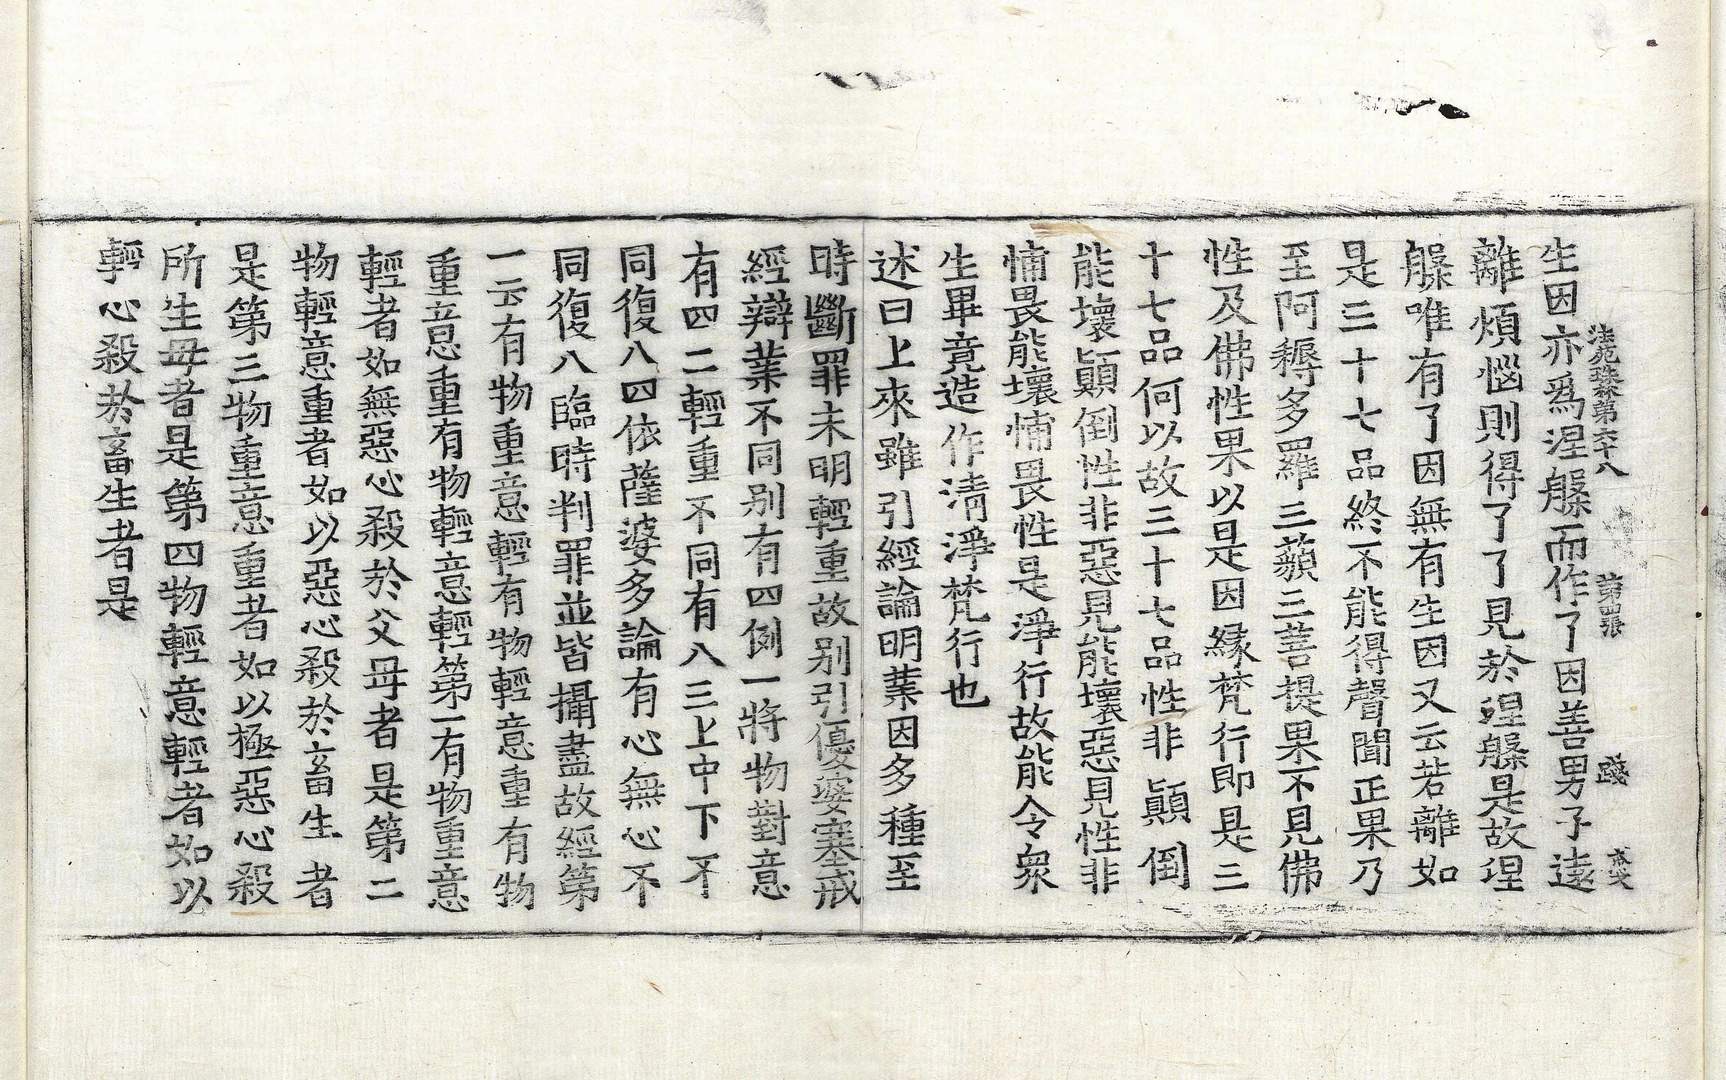 法苑珠林第六十八 第四張
生因亦爲涅槃而作了因善男子遠
離煩惱則得了了見於涅槃是故涅
槃唯有了因無有生因又云若離如
是三十七品終不能得聲聞正果乃
至阿耨多羅三藐三菩提果不見佛
性及佛性果以是因緣梵行即是三
十七品何以故三十七品性非顛倒
能壞顛倒性非惡見能壞惡見性非
怖畏能壞怖畏性是淨行故能令衆
生畢竟造作清淨梵行也
述曰上來雖引經論明業因多種至
時斷罪未明輕重故別引優婆塞戒
經辯業不同別有四例一將物對意
有四二輕重不同有八三上中下不
同復八四依薩婆多論有心無心不
同復八臨時判罪並皆攝盡故經第
一云有物重意輕有物輕意重有物
重意重有物輕意輕第一有物重意
輕者如無惡心殺於父母者是第二
物輕意重者如以惡心殺於畜生者
是第三物重意重者如以極惡心殺
所生母者是第四物輕意輕者如以
輕心殺於畜生者是